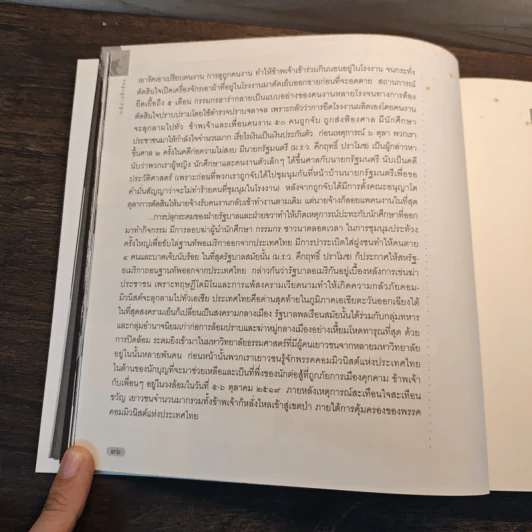 เอารัดเอาเปรียบคนงาน การดูถูกคนงาน ทำให้ข้าพเจ้าเข้าร่วมกินนอนอยู่ในโรงงาน จนกระทั่ง
ตัดสินใจเปิดเครื่องจักรเอาผ้าที่อยู่ในโรงงานมาตัดเย็บออกขายก่อนที่จะอดตาย สถานการณ์
ยืดเยื้อถึง ๕ เดือน กรรมกรฮาร่ากลายเป็นแบบอย่างของคนงานหลายโรงจนทางการต้อง
ตัดสินใจปราบปรามโดยใช้ตำรวจปราบจลาจล เพราะกลัวว่าการยึดโรงงานผลิตเองโดยคนงาน
จะลุกลามไปทั่ว ข้าพเจ้าและเพื่อนคนงาน ๕๐ คนถูกจับ ถูกส่งฟ้องศาล มีนักศึกษา
ประชาชนมาให้กำลังใจจำนวนมาก เรี่ยไรเงินเป็นเงินประกันตัว ก่อนเหตุการณ์ ๖ ตุลา พวกเรา
ขึ้นศาล ๒ ครั้งในคดีก่อความไม่สงบ มีนายกรัฐมนตรี (ม.ร.ว. คึกฤทธิ์ ปราโมช) เป็นผู้กล่าวหา
นับว่าพวกเราผู้หญิง นักศึกษาและคนงานตัวเล็กๆ ได้ขึ้นศาลกับนายกรัฐมนตรี นับเป็นคดี
ประวัติศาสตร์ (เพราะก่อนที่พวกเราถูกจับได้ไปชุมนุมกันที่หน้าบ้านนายกรัฐมนตรีเพื่อขอ
คำมั่นสัญญาว่าจะไม่ทำร้ายคนที่ชุมนุมในโรงงาน) หลังจากถูกจับได้มีการตั้งคณะอนุญาโต
ตุลาการตัดสินให้นายจ้างรับคนงานกลับเข้าทำงานตามเดิม แต่นายจ้างก็ลอยแพคนงานในที่สุด
...การปลุกระดมของฝ่ายรัฐบาลและฝ่ายขวาทำให้เกิดเหตุการณ์ปะทะกับนักศึกษาที่ออก
มาทำกิจกรรม มีการลอบฆ่าผู้นำนักศึกษา กรรมกร ชาวนาตลอดเวลา ในการชุมนุมประท้วง
ครั้งใหญ่เพื่อขับไล่ฐานทัพอเมริกาออกจากประเทศไทย มีการปาระเบิดใส่ฝูงชนทำให้คนตาย
๔ คนและบาดเจ็บนับร้อย ในที่สุดรัฐบาลสมัยนั้น (ม.ร.ว. คึกฤทธิ์ ปราโมช) ก็ประกาศให้สหรัฐ-
อเมริกาถอนฐานทัพออกจากประเทศไทย กล่าวกันว่ารัฐบาลอเมริกันอยู่เบื้องหลังการเข่นฆ่า
ประชาชน เพราะทฤษฎีโดมิโนและการแพ้สงครามเวียดนามทำให้เกิดความกลัวภัยคอม-
มิวนิสต์จะลุกลามไปทั่วเอเชีย ประเทศไทยคือด่านสุดท้ายในภูมิภาคเอเชียตะวันออกเฉียงใต้
ในที่สุดสงครามเย็นก็เปลี่ยนเป็นสงครามกลางเมือง รัฐบาลพลเรือนสมัยนั้นได้ร่วมกับกลุ่มทหาร
และกลุ่มอำนาจนิยมเก่าก่อการล้อมปราบและฆ่าหมู่กลางเมืองอย่างเหี้ยมโหดทารุณที่สุด ด้วย
การปิดล้อม ระดมยิงเข้ามาในมหาวิทยาลัยธรรมศาสตร์ที่มีผู้คนเยาวชนจากหลายมหาวิทยาลัย
อยู่ในนั้นหลายพันคน ก่อนหน้านั้นพวกเราเยาวชนรู้จักพรรคคอมมิวนิสต์แห่งประเทศไทย
ในด้านของนักบุญที่จะมาช่วยเหลือและเป็นที่พึ่งของนักต่อสู้ที่ถูกภัยการเมืองคุกคาม ข้าพเจ้า
กับเพื่อนๆ อยู่ในวงล้อมในวันที่ ๕-๖ ตุลาคม ๒๕๑๙ ภายหลังเหตุการณ์สะเทือนใจสะเทือน
ขวัญ เยาวชนจำนวนมากรวมทั้งข้าพเจ้าก็หลั่งไหลเข้าสู่เขตป่า ภายใต้การคุ้มครองของพรรค
คอมมิวนิสต์แห่งประเทศไทย